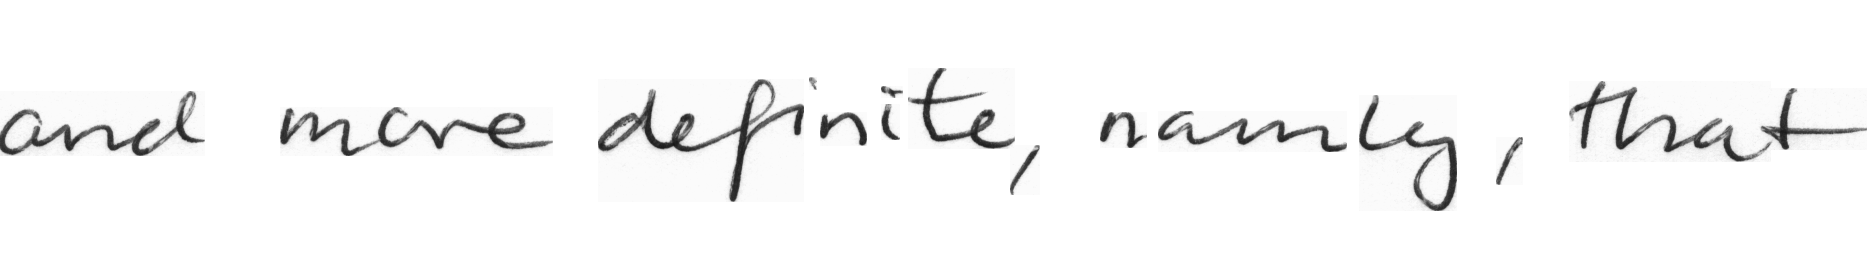 and more definite, namly, that